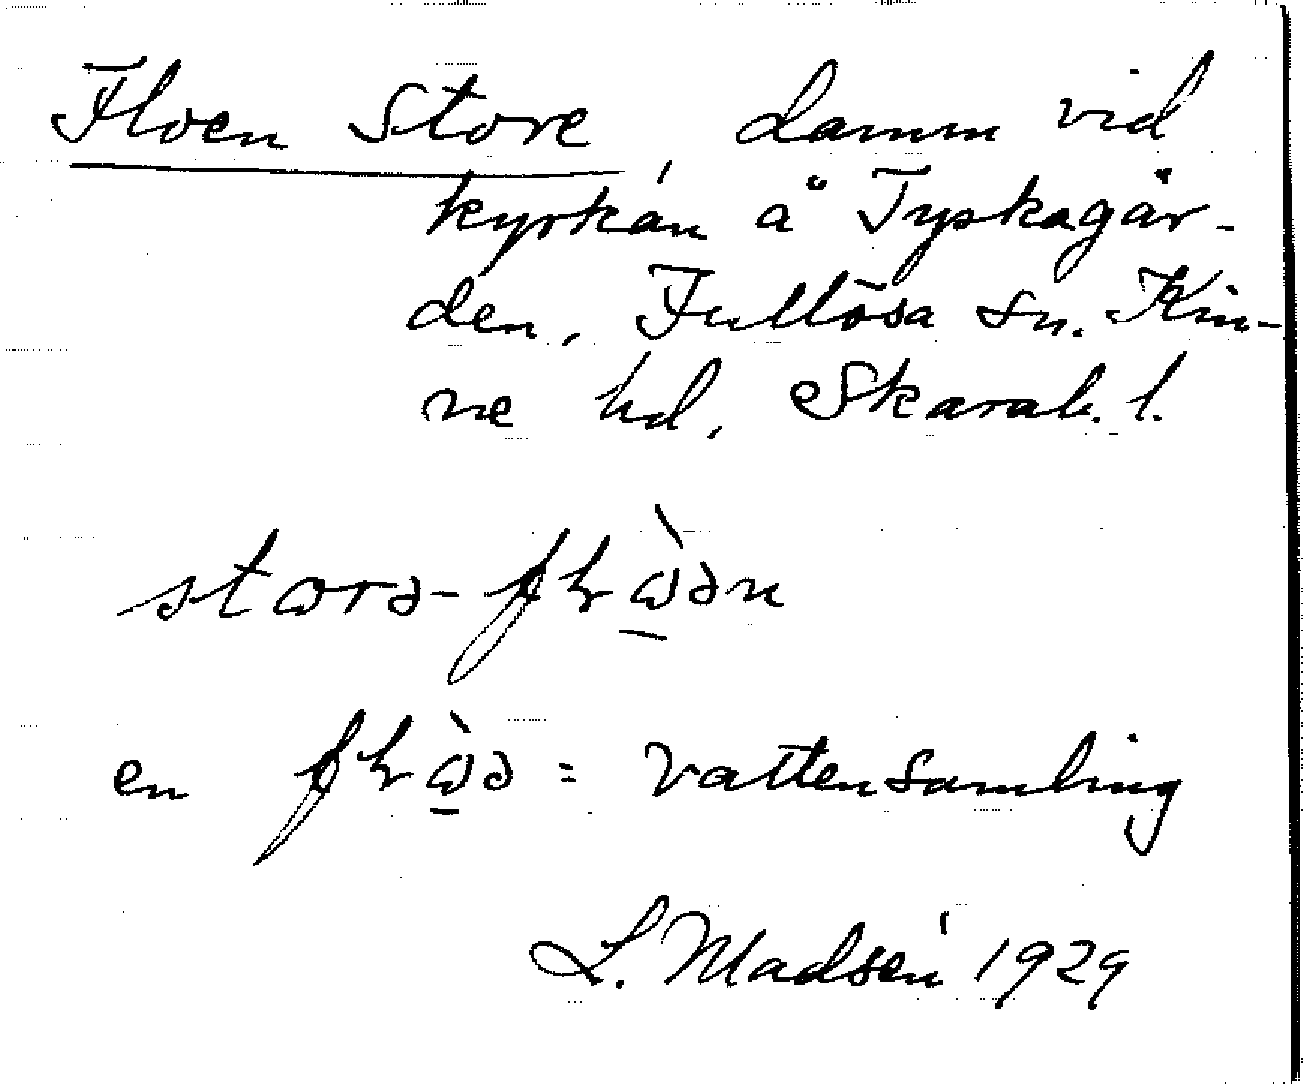 Floen Store, damm vid
kyrkan å Tyskagår-
den, Fullösa sn. Kin-
ne hd, Skarab. l.
en = vattensamling
L. Madsén 1929